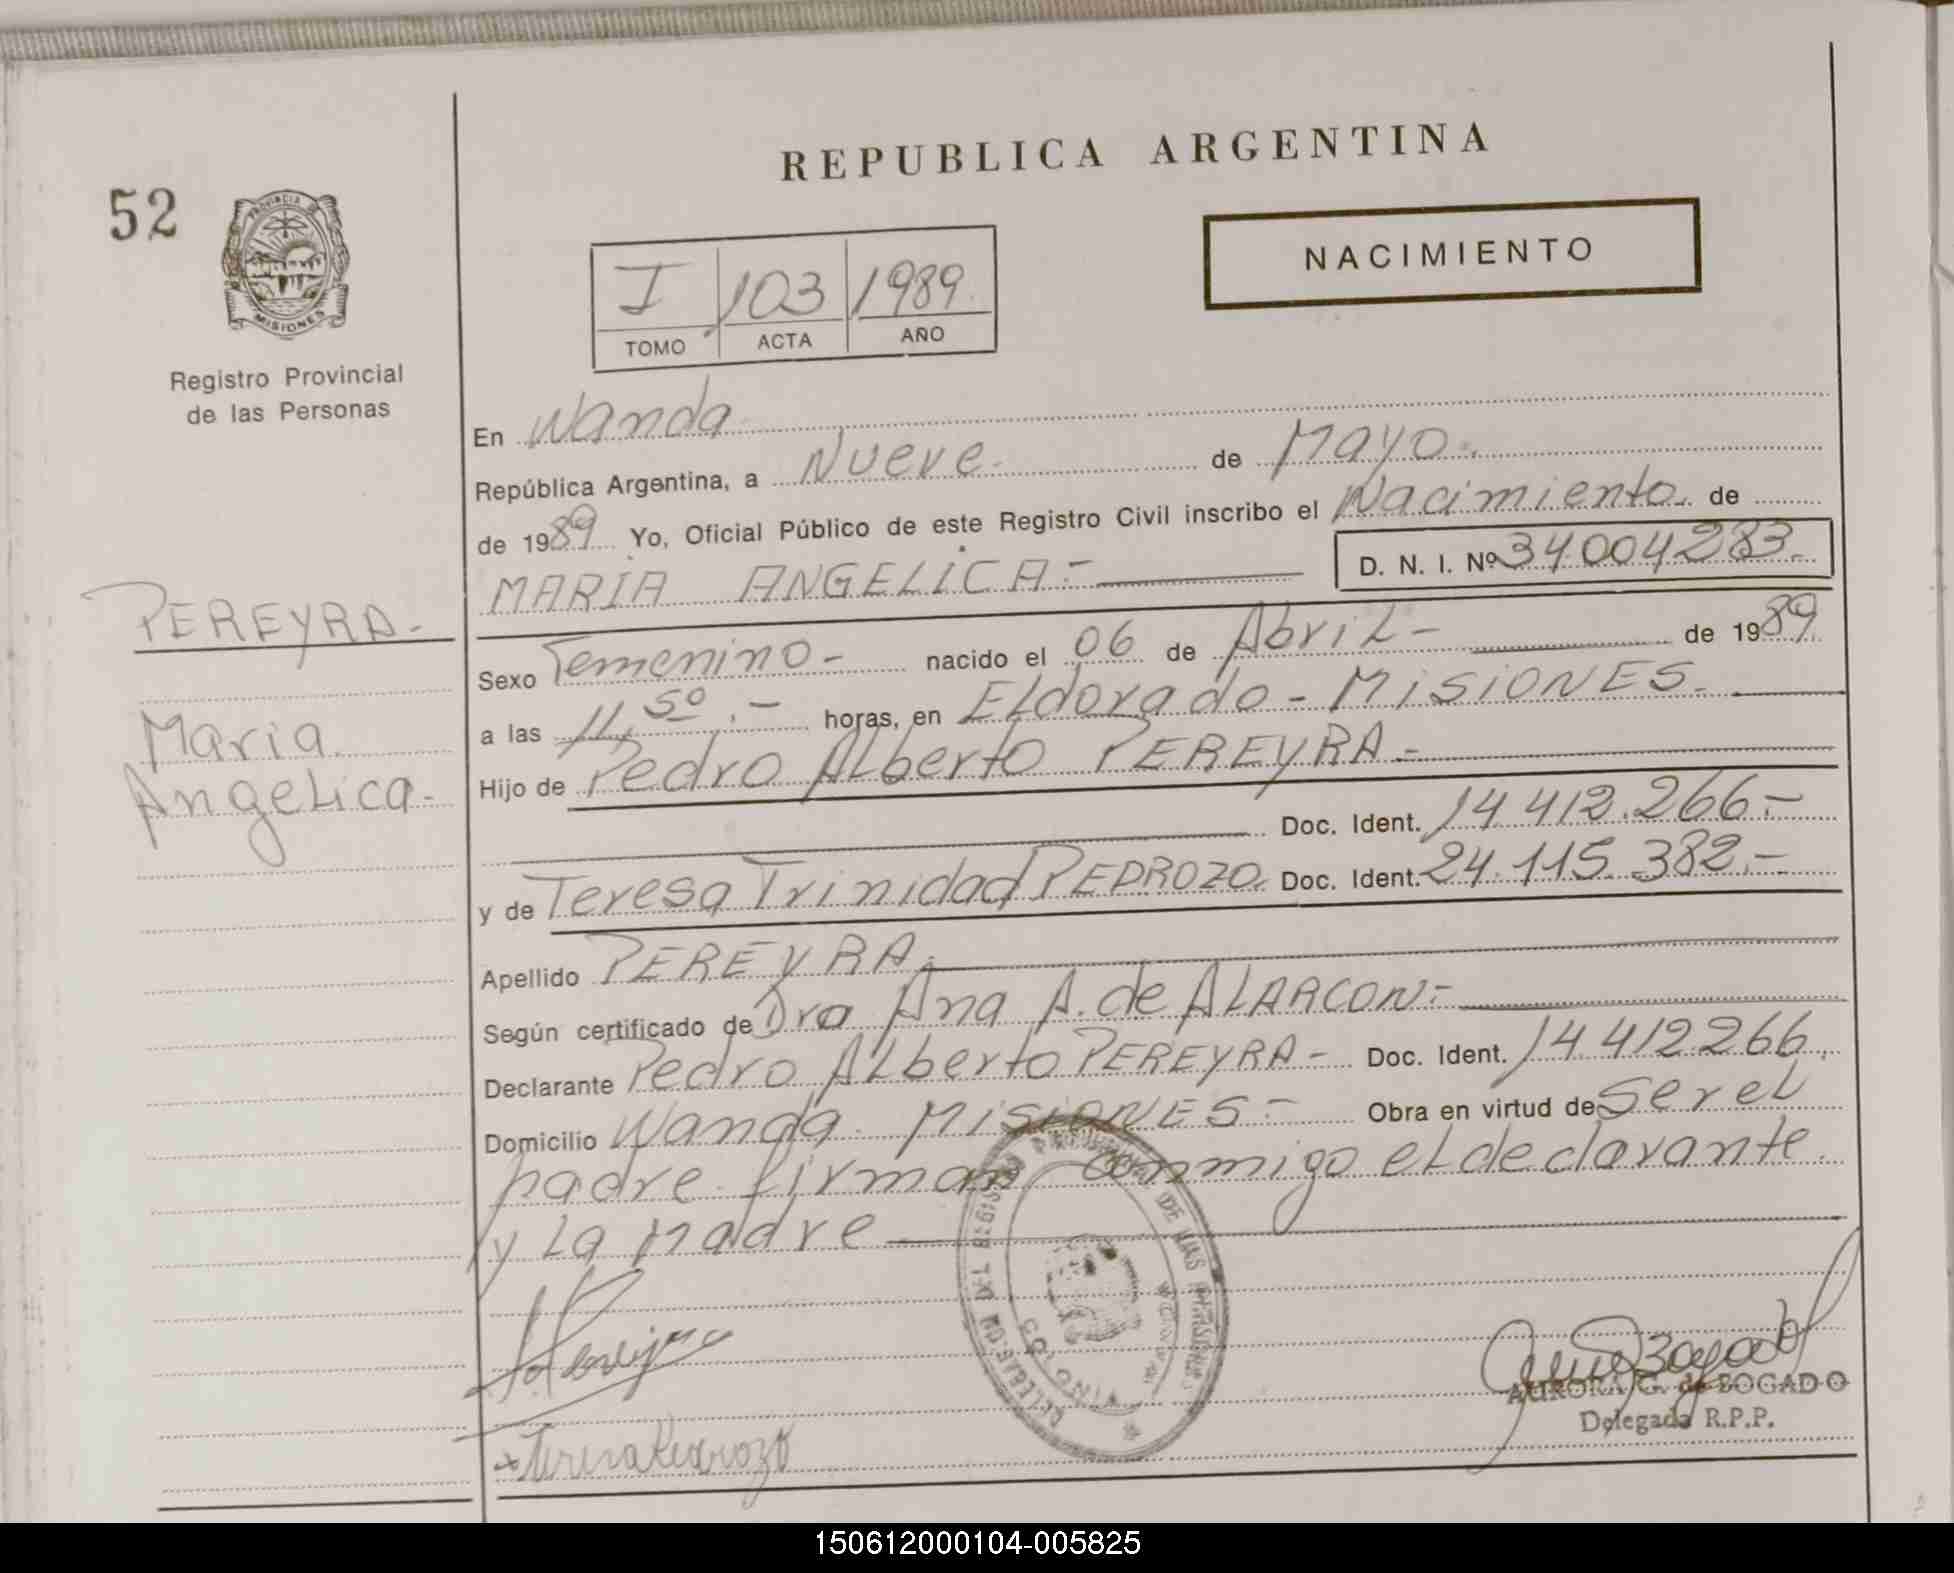 REPUBLICA ARGENTINA
52
PROVINCIA DE
MISIONES
Registro Provincial
de las Personas
I 103 1989.
TOMO ACTA AÑO
NACIMIENTO
En Wanda
República Argentina, a Nueve. de Mayo.
de 1989 Yo, Oficial Público de este Registro Civil inscribo el Nacimiento. de
MARIA ANGELICA.-
D. N. I. Nº 34.004.283.-
PEREYRA.-
Maria
Angelica.-
Sexo Femenino - nacido el 06 de Abril - de 1989
a las 11,50.- horas, en Eldorado - MISIONES.
Hijo de Pedro Alberto PEREYRA.-
Doc. Ident. 14.412.266.-
y de Teresa Trinidad PEDROZO. Doc. Ident. 24.115.382.-
Apellido PEREYRA.
Según certificado de Dra Ana A. de ALARCON.-
Declarante Pedro Alberto PEREYRA - Doc. Ident. 14.412.266.
Domicilio Wanda. MISIONES.- Obra en virtud de ser el
padre. firman conmigo el declarante.
y la madre
Teresa Pedrozo
AURORA G. de BOGADO
Delegada R.P.P.
150612000104-005825